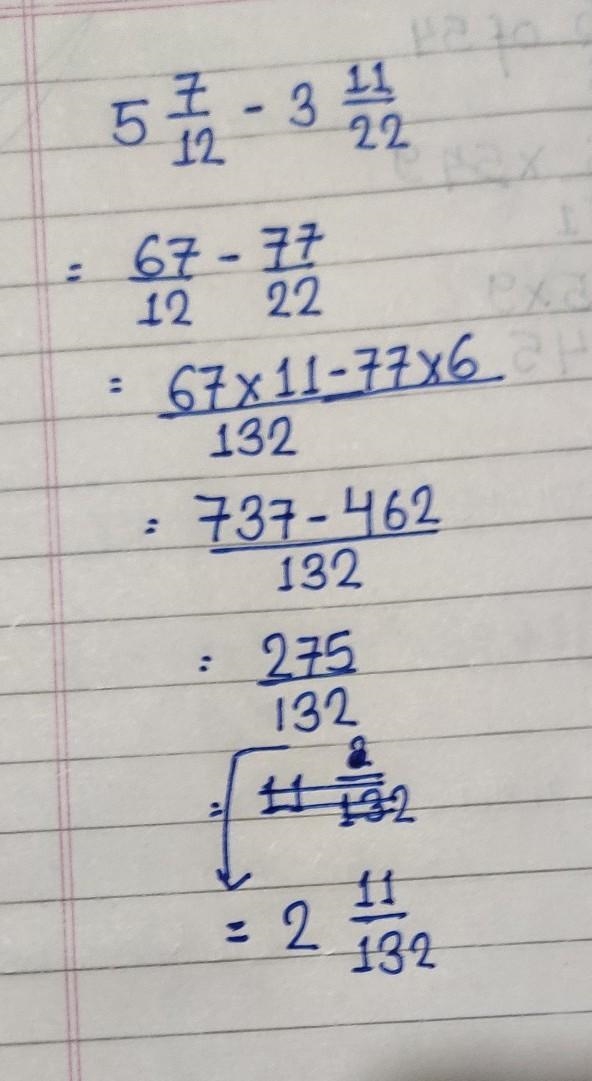 5 7/12 - 3 11/22
= 67/12 - 77/22
= 67×11-77×6/132
= 737-462/132
= 275/132
= 11 2/132
= 2 11/132